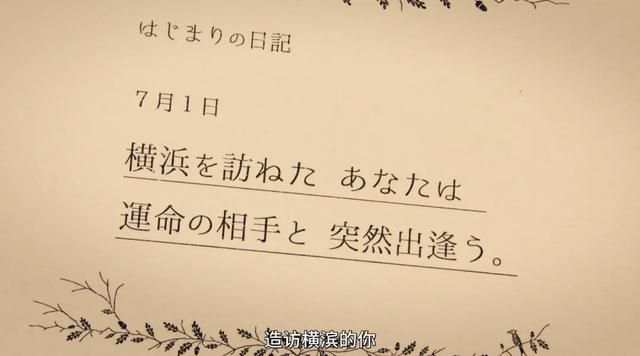 はじまりの日記
7月1日
横浜を訪ねた あなたは
運命の相手と 突然出逢う。
造访横滨的你